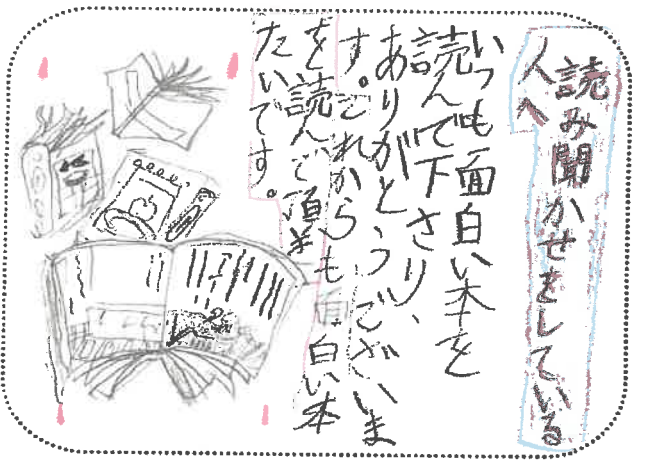 読み聞かせをしている
人へ
いつも面白い本を
読んで下さり、
ありがとうございま
す。これからも面白い本
を読んで頂き
たいです。